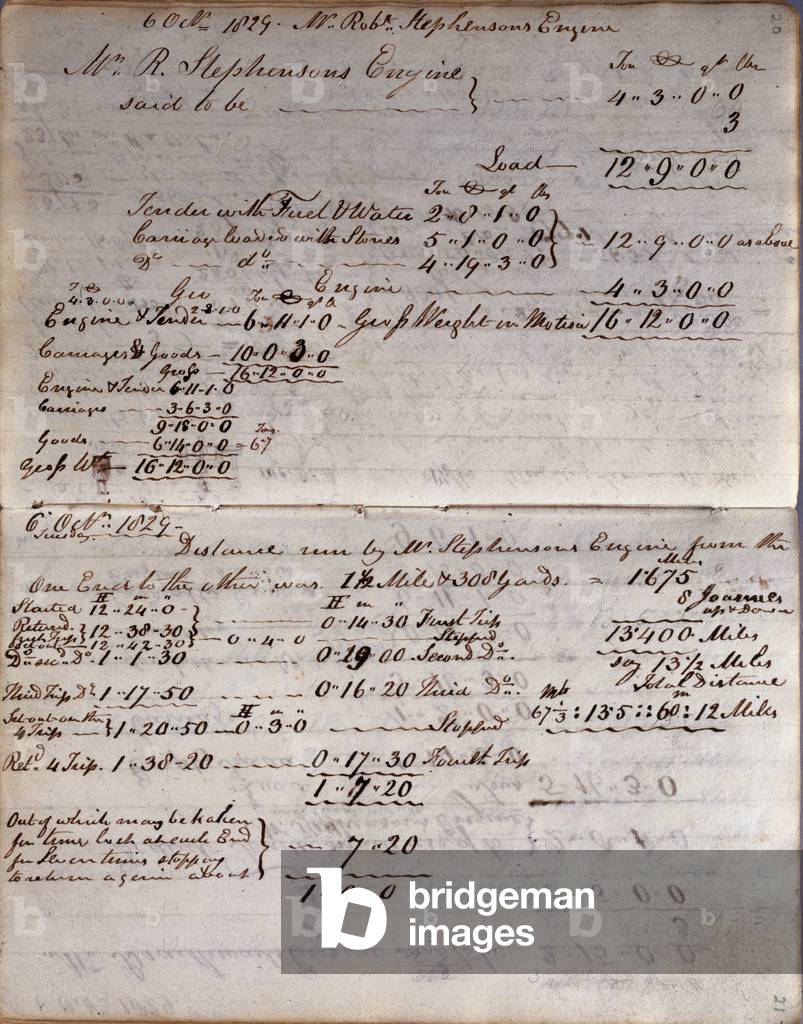 6 Octr. 1829. Mr. Robt. Stephensons Engine
20
Mr. R. Stephensons Engine
said to be
Ton Cwt qr lbs
4 .. 3 .. 0 .. 0
3
Load — 12 .. 9 .. 0 .. 0
Ton Cwt qr lbs
Tender with Fuel & Water 2 .. 8 .. 1 .. 0
Carriage loaded with Stones 5 .. 1 .. 0 .. 0 } 12 .. 9 .. 0 .. 0 as above
Do. do. 4 .. 19 .. 3 .. 0
Engine 4 .. 3 .. 0 .. 0
T C
4.3.0.0
2-8-1-0
Ton Cwt qr
Engine & Tender — 6 .. 11 .. 1 .. 0 — Gross Weight in Motion 16 .. 12 .. 0 .. 0
Carriages & Goods — 10 .. 0 .. 3 .. 0
Gross — 16 .. 12 .. 0 .. 0
Engine & Tender 6-11-1-0
Carriages — 3-6-3-0
9-18-0-0
Goods — 6-14-0-0 = 67
Gross Wt. — 16 .. 12 .. 0 .. 0
6 Octr. 1829 —
Tuesday
Distance run by Mr. Stephensons Engine from the
One End to the other was 1 1/2 Mile & 308 Yards. = 1.675
Miles
8 Journes
up & Down
Started 12 .. 24 .. 0
Returned
12 .. 38 .. 30
0 .. 14 .. 30 First Trip
12 .. 42 .. 30
0 .. 4 .. 0 Stopped
13.400 Miles
Do. 1 .. 1 .. 30 0 .. 19 .. 00 Second Do.
say 13 1/2 Miles
Total Distance
Third Trip Do. 1 .. 17 .. 50 0 .. 16 .. 20 Third Do.
67 1/3 : 13.5 :: 60 : 12 Miles
Set out on the
4 Trip — 1 .. 20 .. 50 — 0 .. 3 .. 0 — Stopped
Retd. 4 Trip. 1 .. 38 - 20 0 .. 17 .. 30 Fourth Trip
1 .. 7 .. 20
Out of which may be taken
for time lost at each End
for Seven times stopping
to return again about
7 .. 20
bridgeman
images
21